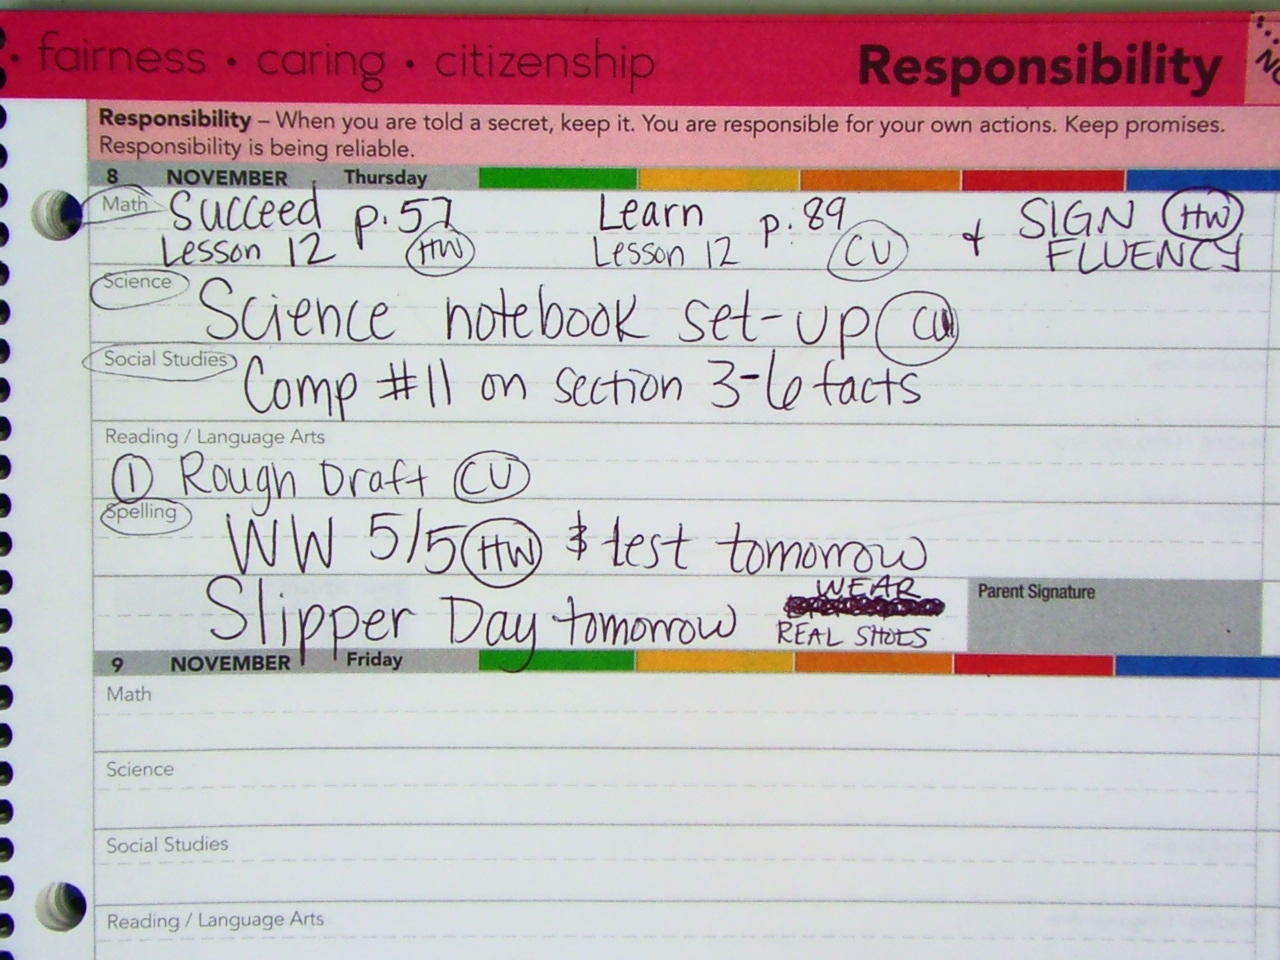 • fairness • caring • citizenship Responsibility
Responsibility – When you are told a secret, keep it. You are responsible for your own actions. Keep promises.
Responsibility is being reliable.
8 NOVEMBER Thursday
Math Succeed p. 57 Learn p. 89 + SIGN HW
Lesson 12 HW Lesson 12 CU FLUENCY
Science
Science notebook set-up CU
Social Studies
Comp #11 on section 3-6 facts
Reading / Language Arts
① Rough Draft CU
Spelling
WW 5/5 HW & test tomorrow
Slipper Day tomorrow WEAR
REAL SHOES
Parent Signature
9 NOVEMBER Friday
Math
Science
Social Studies
Reading / Language Arts